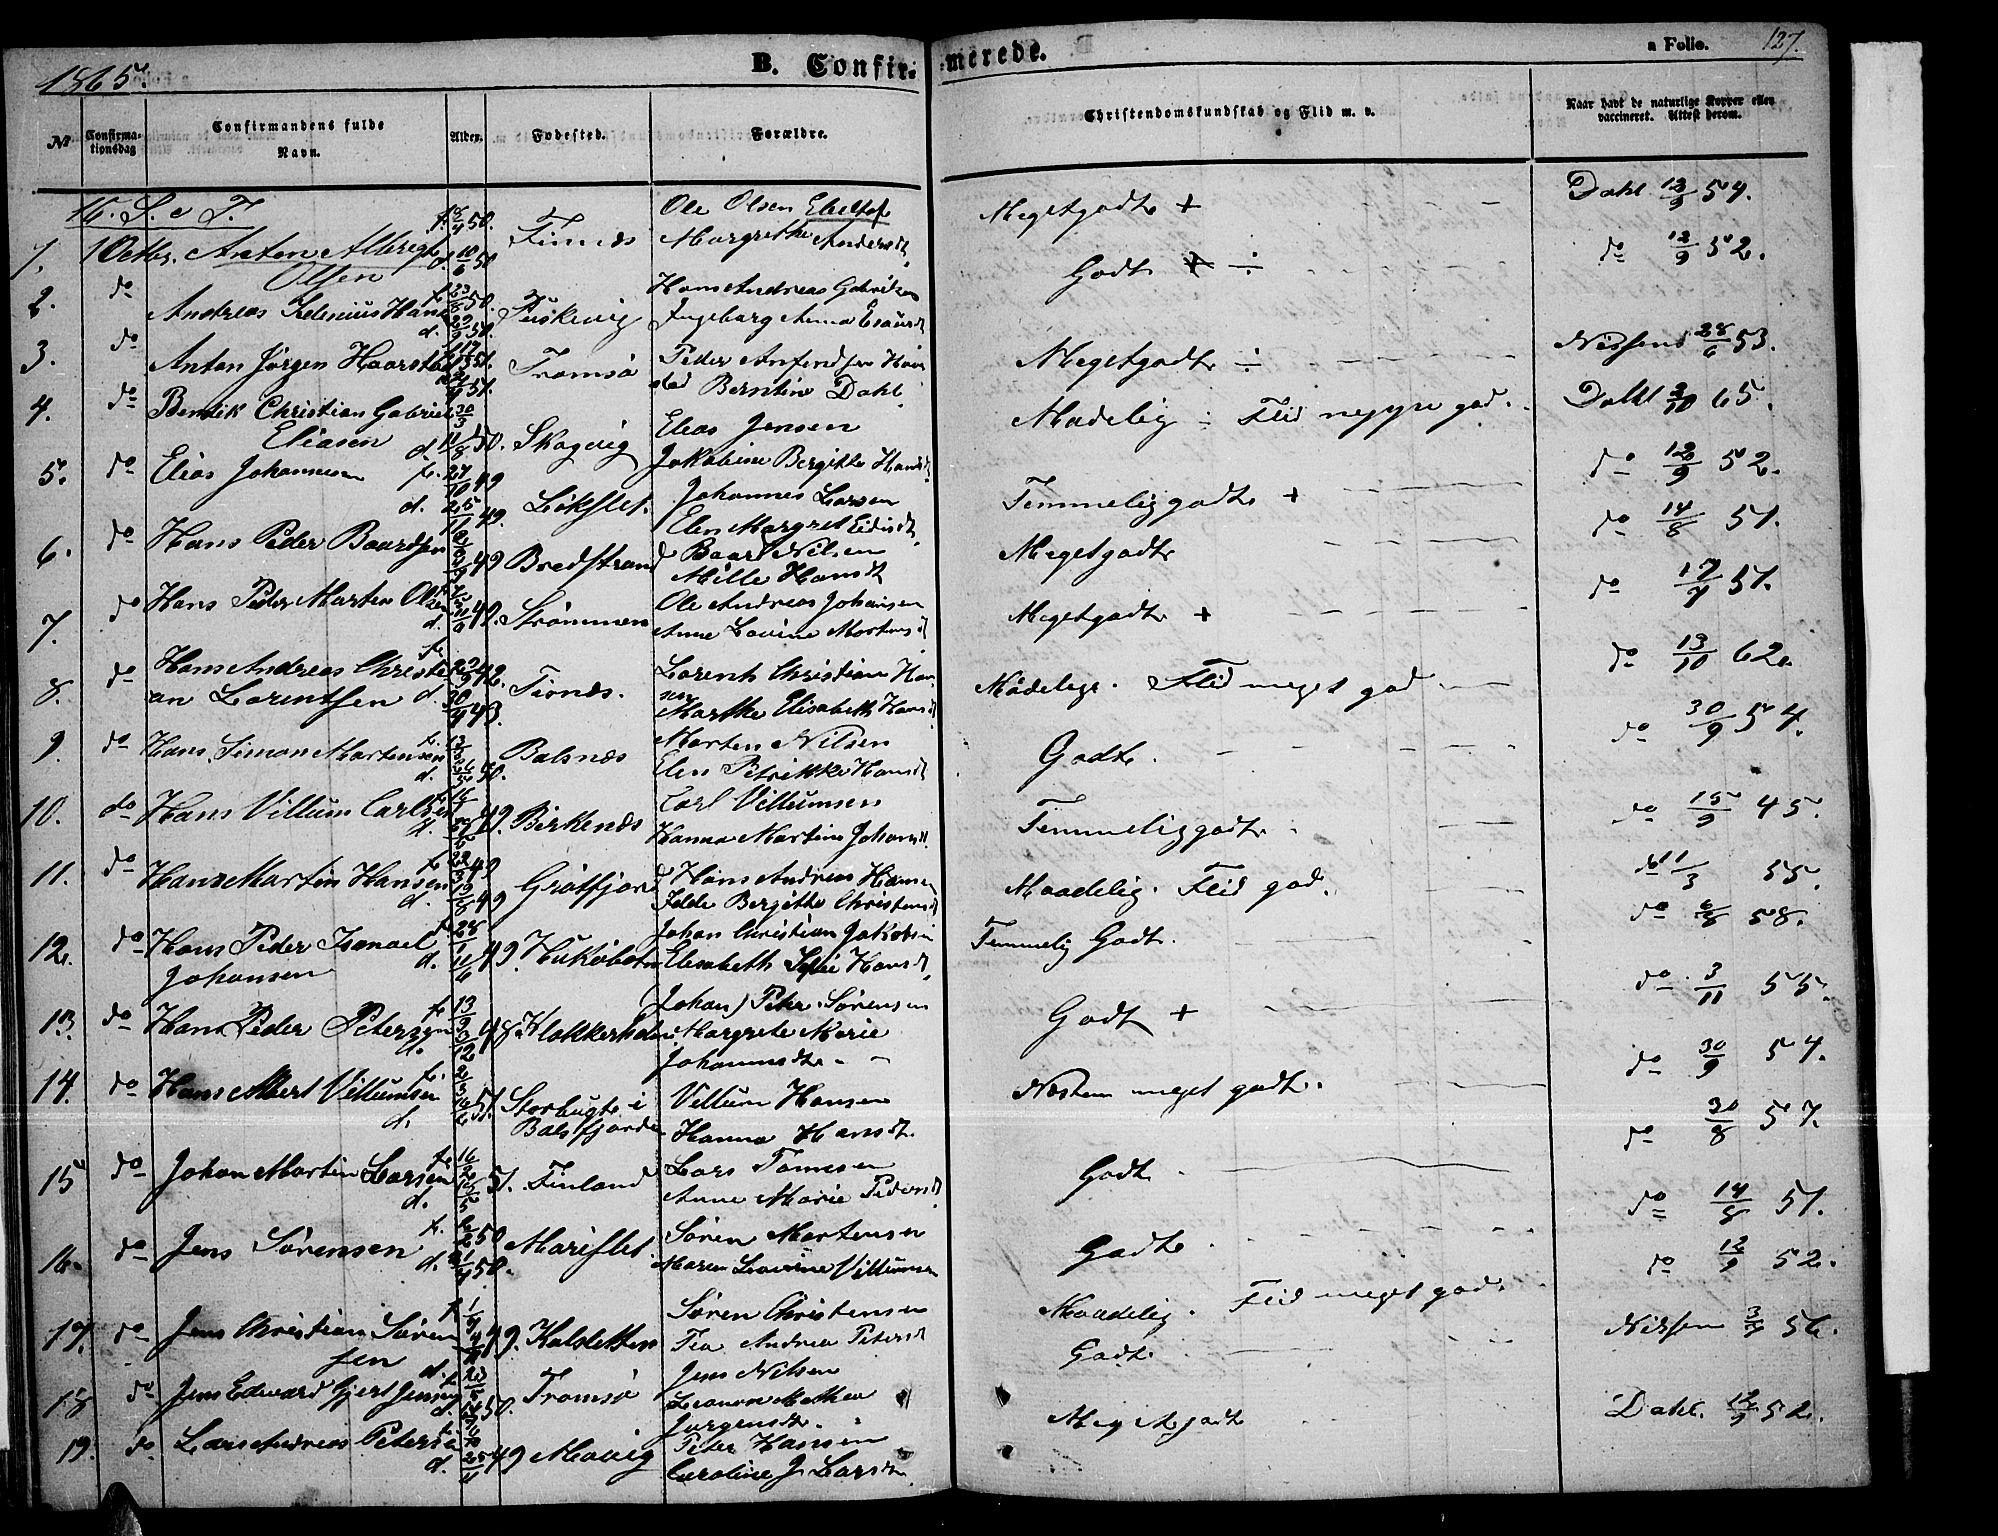 1865.
B. Confir-
merede.
a Folio. 127.
No
Confirmationsdag
Confirmandens fulde Navn.
Alder.
Fødested.
Forældre.
Christendomskundskab og Flid m. v.
Naar havt de naturlige Kopper eller vaccineret. Attest derom.
16. S. e T.
1. 1 Octbr. Anton Albregt Olsen f. 18/4 50. d. 10/6 50 Finnes Ole Olsen Ebeltoft Margrethe Andersdt. Megetgodt + Dahl 12/9 54.
2. do Andreas Hans f. 23/8 50. d. 29/9 50. Hans Andreas Ingeborg Anna Godt ÷ do 12/9 52.
3. do Anton Jørgen Haarstad 51. 51. Tromsø Peder Haarstad Berntine Dahl Megetgodt ÷ Nissen 28/6 53.
4. do Bendik Christian Gabriel Eliasen 30/3 d. 11/8 50. Skogvig Elias Jensen Jakobine Bergitte Hansdt. Madelig ÷ Flid neppe god. Dahl 2/10 65.
5. do Elias Johannesen f. 27/10 49 d. 25/11 49. Løkslet. Johannes Larsen Elen Margret Temmeliggodt + do 12/9 52.
6. do Hans Peder Baardsen 49 Bredstrand Baard Nilsen Mille Hansdt Megetgodt do 14/8 51.
7. do Hans Peder Morten Olsen d. 49. Strømmen Ole Andreas Johansen Anne Lovine Mortensdt Megetgodt + do 17/7 51.
8. do Hans Andreas Christian Lorentsen f. 42. d. 30/4 43. Tisnes. Lorents Christian Hansen Marthe Elisabeth Hansdt Mådelig. Flid meget god do 13/10 62.
9. do Hans Simon Mortensen f. d. 50. Balsnes Morten Nilsen Elen Petrikke Hansdt Godt. do 30/9 54.
10. do Hans Villum Carlsen f. d. 49. Birkenes Carl Villumsen Hanna Martine Johansdt. Temmeliggodt. do 15/9 45.
11. do Hans Martin Hansen f. 22/3 49 d. 19/8 49 Grøtfjord Hans Andreas Hansen Bergitte Christensdt Maadelig. Flid god. do 11/3 55.
12. do Hans Peder Ismael Johansen f. 28/1 d. 11/6 49. Johan Christian Jakobsen Elisabeth Sofie Hansdt. Temmelig Godt. do 6/8 58.
13. do Hans Peder Petersen f. 13/9 d. 3/12 48 (Johan) Peter Sørensen Margrete Marie Johannesdt. Godt + do 3/11 55.
14. do Hans Albert Villumsen f. 2/3 d. 51. Storbugt i Balsfjorden Villum Hansen Hanna Hansdt. Næsten meget godt. do 30/9 54.
15 do Johan Martin Larsen f. 16/2 d. 51. Finland Lars Tomesen Anne Marie Pedersdt. Godt. do 30/8 57.
16. do Jens Sørensen f. 50 d. 50. Marislet Søren Mortensen Maren Lovine Villumsen Godt. do 14/8 51.
17. do Jens Christian Sørensen f. 1/9 4/11 49. Kalsletten Søren Christensen Tea Andrea Petersdt Maadelig. Flid meget god. do 12/9 52.
18 do Jens Edvard Gjert Jensen d. 50. Tromsø Jens Nilsen Jørgensdt. Godt. Nissen 56.
19. do Lars Andreas Petersen f. d. 25/11 49 Movig Peder Hansen Caroline J. Larsdt. Meget godt Dahl. 12/9 52.